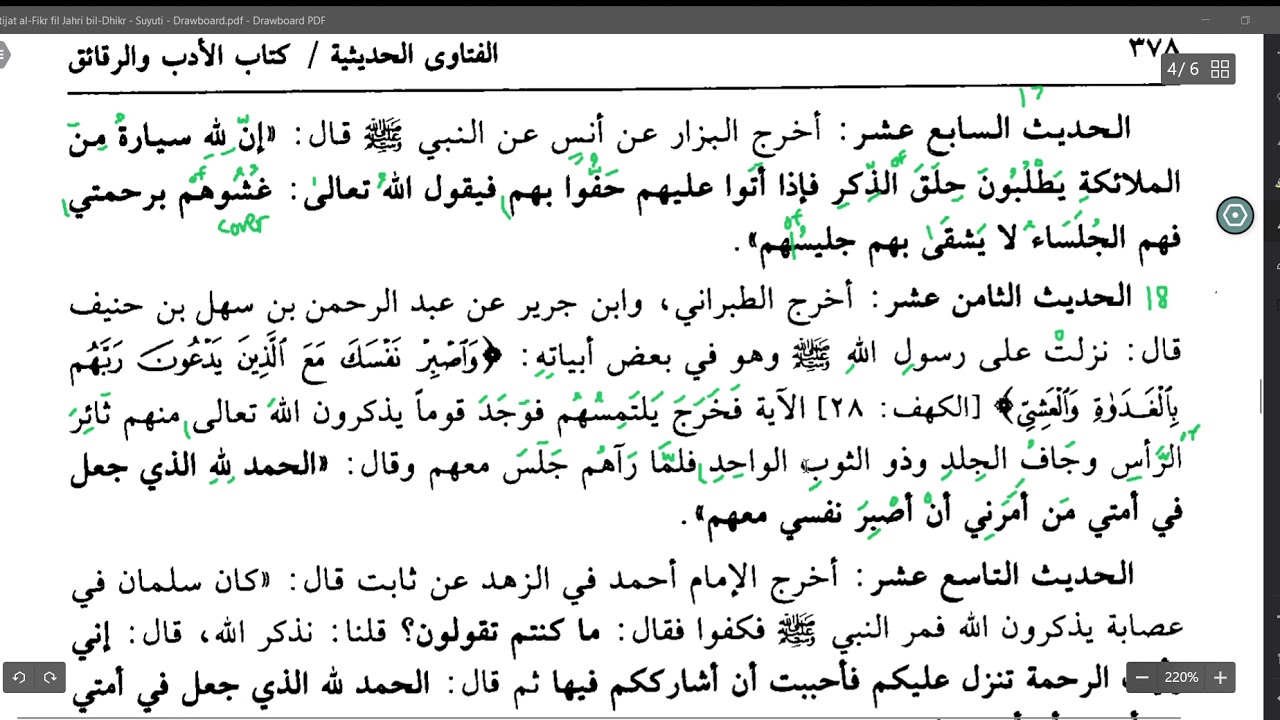 tijat al-Fikr fil Jahri bil-Dhikr - Suyuti - Drawboard.pdf - Drawboard PDF
٣٧٨
الفتاوى الحديثية / كتاب الأدب والرقائق
4/6
17
الحديث السابع عشر: أخرج البزار عن أنسٍ عن النبي ﷺ قال: «إنّ لِلهِ سيارةً مِنَ
الملائكةِ يَطْلُبُونَ حِلَقَ الذِّكرِ فإذا أتَوا عليهم حَفُّوا بهم فيقول اللهُ تعالىٰ: غَشُوهُم برحمتي
of
of
cover
فهم الجُلَسَاء لا يَشقىٰ بهم جليسُهم».
of
18 الحديث الثامن عشر: أخرج الطبراني، وابن جرير عن عبد الرحمن بن سهل بن حنيف
قال: نزلتْ على رسولِ اللهِ ﷺ وهو في بعض أبياتِهِ: ﴿وَٱصْبِرْ نَفْسَكَ مَعَ ٱلَّذِينَ يَدْعُونَ رَبَّهُم
بِٱلْغَدَوٰةِ وَٱلْعَشِيِّ﴾ [الكهف: ٢٨] الآية فَخَرَجَ يَلتَمِسُهُم فوَجَدَ قوماً يذكرون اللهَ تعالى منهم ثَائِرَ
الرَّأسِ وجَافُ الجِلدِ وذو الثوبِ الواحِدِ فلمَّا رَآهُم جَلَسَ معهم وقال: «الحمد لِلهِ الذي جعل
في أمتي مَن أمَرَنِي أنْ أصْبِرَ نفسي معهم».
الحديث التاسع عشر: أخرج الإمام أحمد في الزهد عن ثابت قال: «كان سلمان في
عصابة يذكرون الله فمر النبي ﷺ فكفوا فقال: ما كنتم تقولون؟ قلنا: نذكر الله، قال: إني
الرحمة تنزل عليكم فأحببت أن أشارككم فيها ثم قال: الحمد لله الذي جعل في أمتي
220%